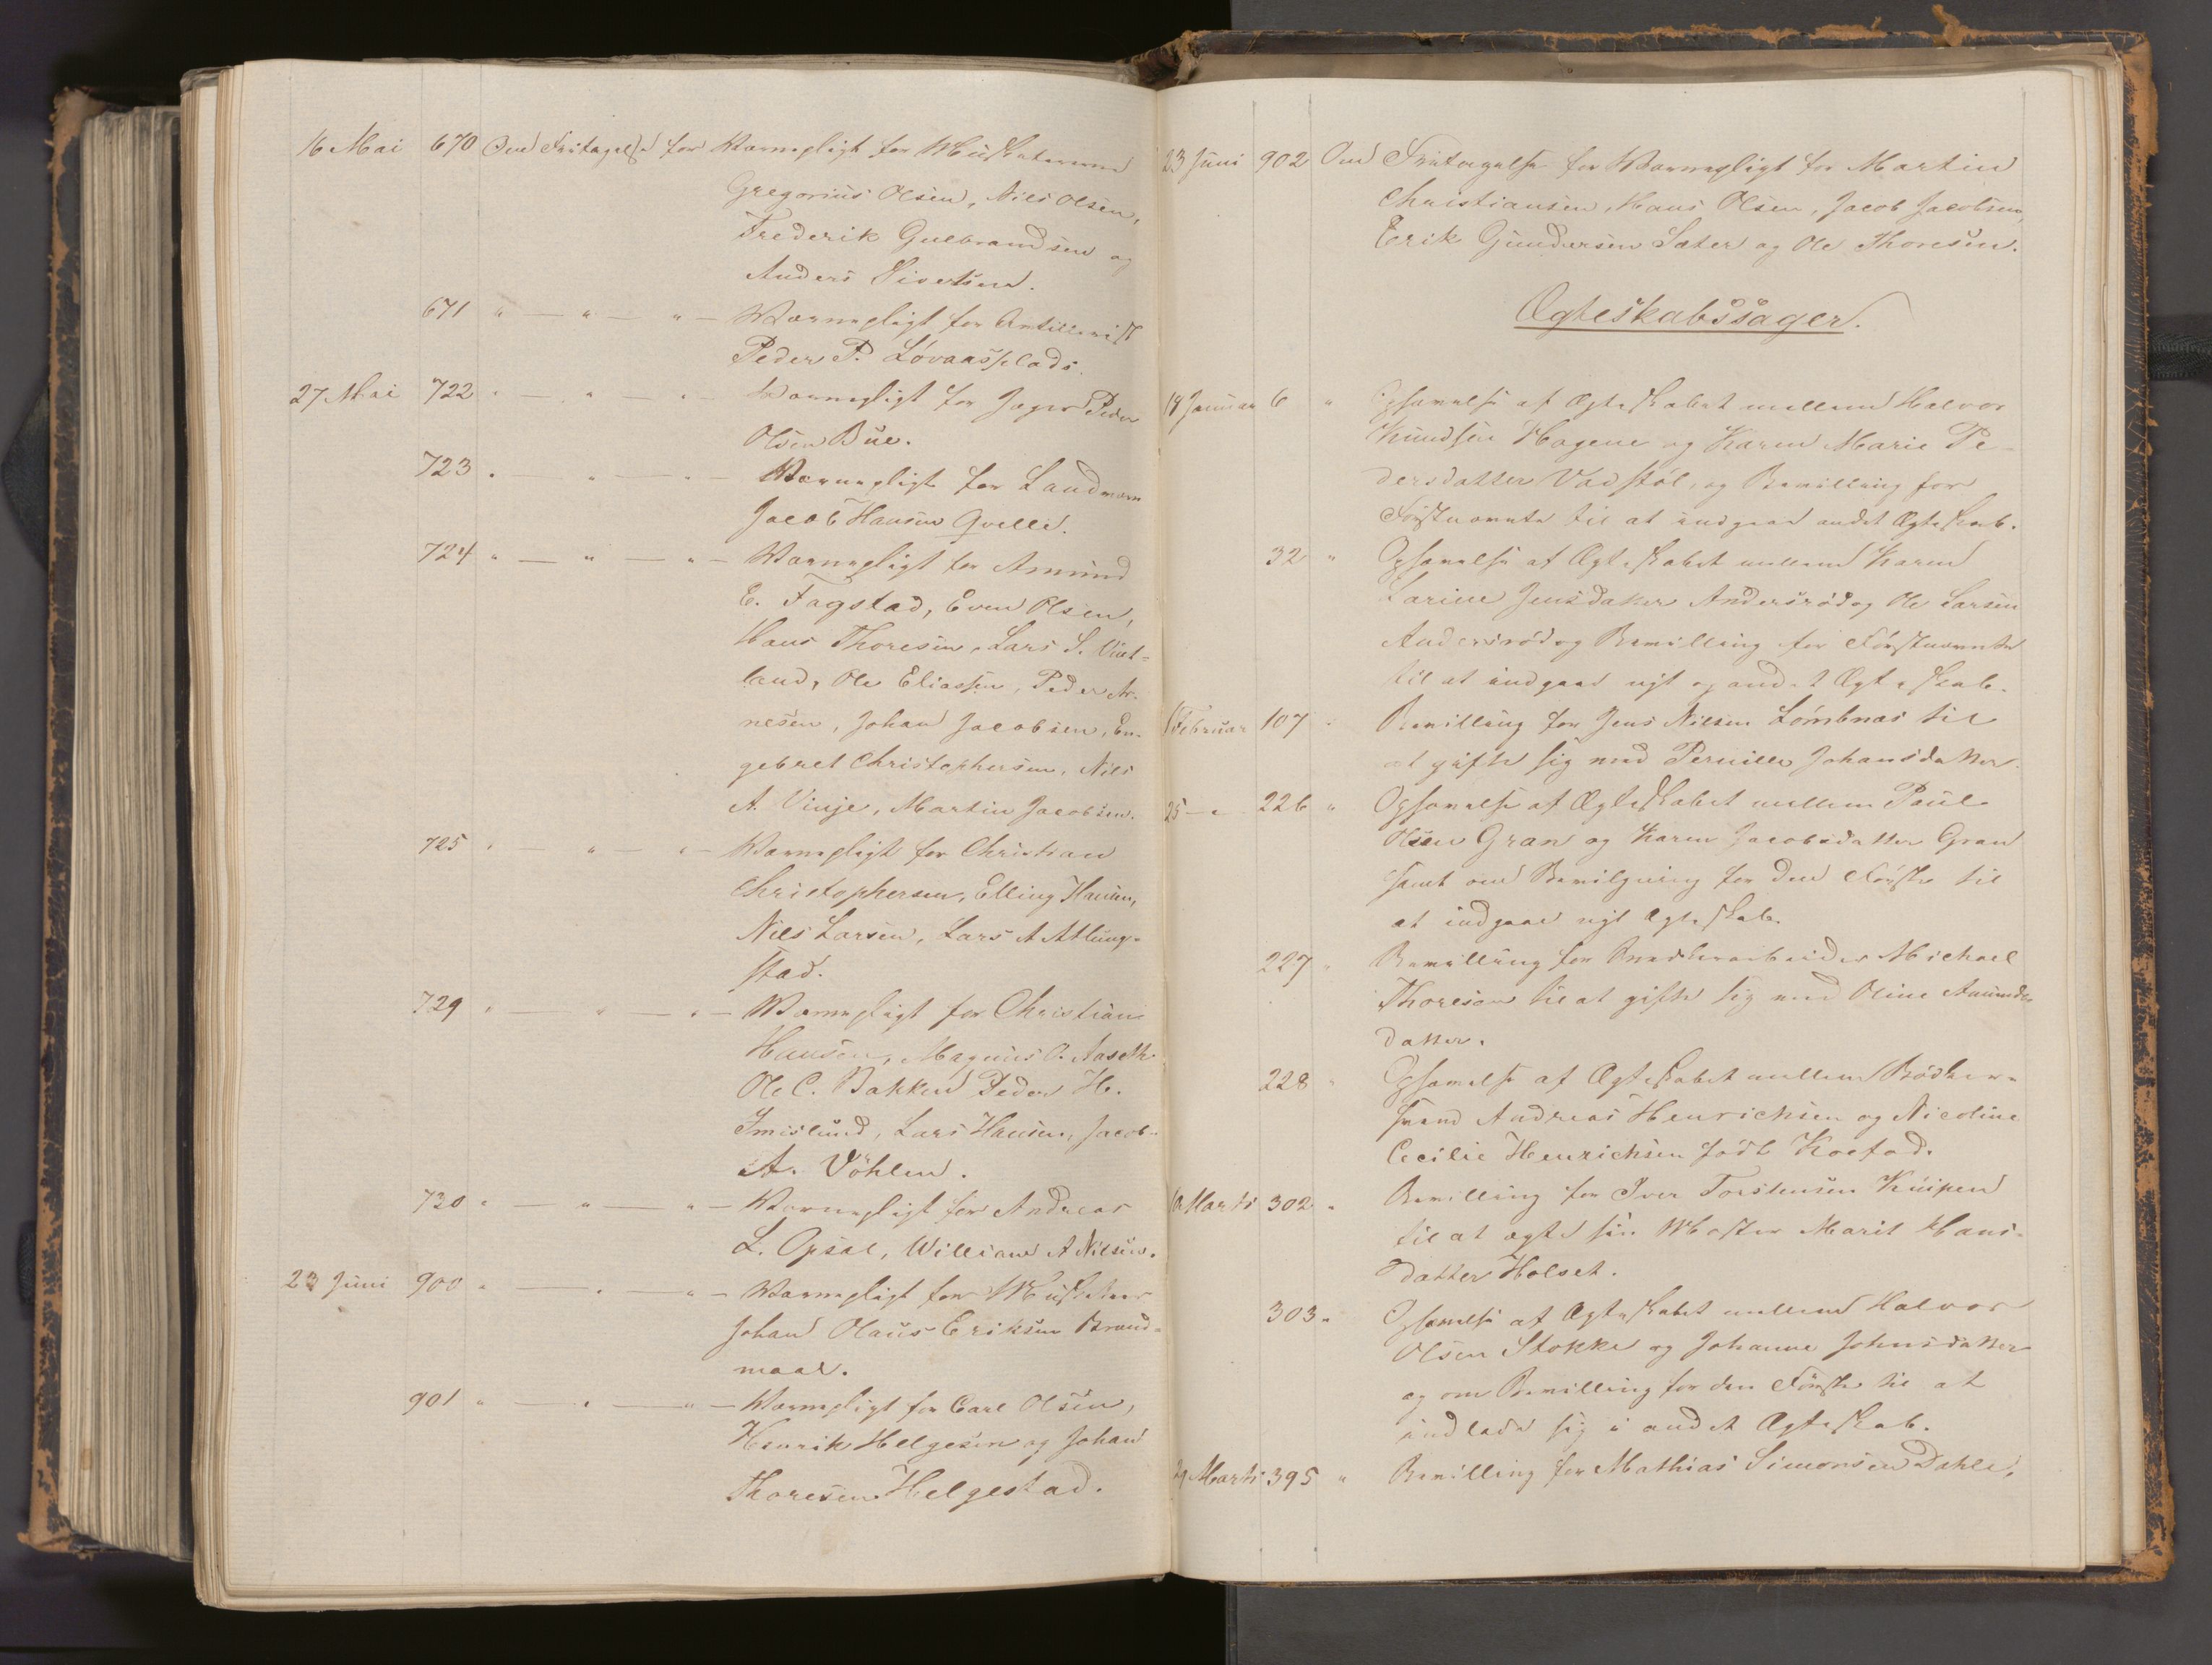 16 Mai 670 Om Fritagelse for Værnepligt for Musketererne
Gregorius Olsen, Nils Olsen,
Frederik Gulbrandsen og
Anders Sivertsen.
671 " — " — " — Værnepligt for Artillerist
Peder P. Løvaasplads.
27 Mai 722 " — " — " — Værnepligt for Jæger Peder
Olsen Bue.
723 " — " — " — Værnepligt for Landværn
Jacob Hansen Qvelle.
724 " — " — " — Værnepligt for Amund
E. Fagstad, Even Olsen,
Hans Thoresen, Lars S.
land, Ole Eliassen, Peder Ar-
nesen, Johan Jacobsen, En-
gebret Christophersen, Nils
A. Vinje, Martin Jacobsen.
725 " — " — " — Værnepligt for Christian
Christophersen, Elling Hansen,
Nils Larsen, Lars A Atlung-
stad.
729 " — " — " — Værnepligt for Christian
Hansen, Magnus O. Aaseth
Ole C. Bakken Peder H.
Imislund, Lars Hansen, Jacob
A. Vöhlen.
730 " — " — " — Værnepligt for Andreas
L. Opsal, William A Nilsen.
23 Juni 900 " — " — " — Værnepligt for Musketeer
Johan Olaus Eriksen Brand-
maal.
901 " — " — " — Værnepligt for Carl Olsen,
Henrik Helgesen og Johan
Thoresen Helgestad.
23 Juni 902 Om Fritagelse for Værnepligt for Martin
Christiansen, Hans Olsen, Jacob Jacobsen,
Erik Gundersen Sæter og Ole Thoresen.
Ægteskabssager.
18 Januar 6 " Ophævelse af Ægteskabet mellem Halvor
Knudsen Hagene og Karen Marie Pe-
dersdatter Vadstöl, og Bevilling for
Förstnævnte til at indgaa andet Ægteskab.
32 " Ophævelse af Ægteskabet mellem Karen
Larine Jensdatter Andersröd og Ole Larsen
Andersröd og Bevilling for Förstnævnte
til at indgaa nyt og andet Ægteskab.
Februar 107 " Bevilling for Jens Nilsen Lömbnæs til
at gifte sig med Pernille Johansdatter.
25 — " 226 " Ophævelse af Ægteskabet mellem Paul
Olsen Gran og Karen Jacobsdatter Gran
samt om Bevilgning for den Förste til
at indgaae nyt Ægteskab.
227 " Bevilling for Michael
Thoresen til at gifte sig med Oline Amunds-
datter.
228 " Ophævelse af Ægteskabet mellem Bödker-
svend Andreas Henrichsen og Nicoline
Cecilie Henrichsen född Koefod.
Marts 302 " Bevilling for Iver Torstensen Kuipen
til at ægte sin Moster Marit Hans-
datter Holset.
303 " Ophævelse af Ægteskabet mellem Halvor
Olsen Stokke og Johanne Johnsdatter
og om Bevilling for den Förste til at
indlade sig i andet Ægteskab.
29 Marts 395 " Bevilling for Mathias Simonsen Dahle,